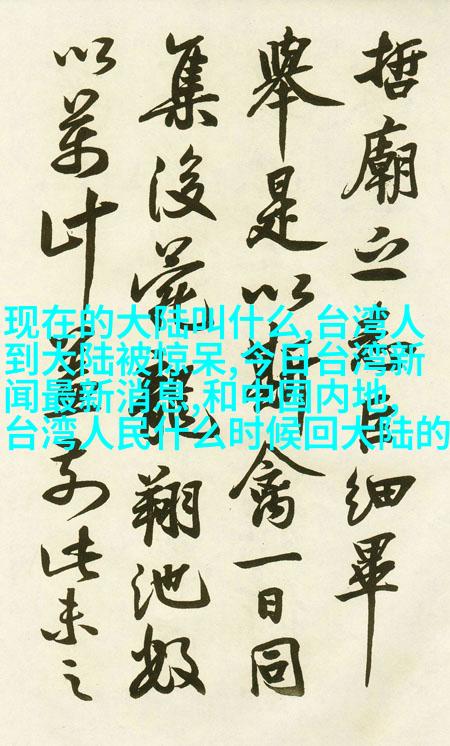 哲廟之細畢
舉是以禽一日同
集後翔池
以萬計前此未之
现在的大陆叫什么,台湾人
到大陆被惊呆,今日台湾新
闻最新消息,和中国内地,
台湾人民什么时候回大陆的